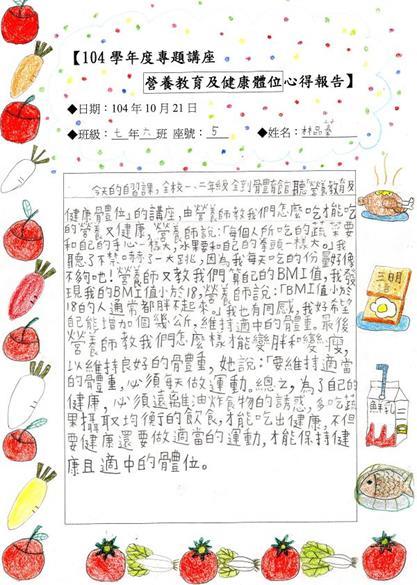 【104 學年度專題講座
營養教育及健康體位心得報告】
◆日期：104 年 10 月 21 日
◆班級：七 年 六 班 座號：5 ◆姓名：林品蓁
今天的自習課，全校一、二年級全到體育館聽「營養教育及
健康體位」的講座，由營養師教我們怎麼吃才能吃
的營養又健康，營養師說：「每個人所吃的蔬菜要
和自己的手心一樣大，水果要和自己的拳頭一樣大。」我
聽了不禁嚇了一大跳，因為我每天吃的份量好像
不夠吔！營養師又教我們算自己的BMI值，我發
現我的BMI值小於18，營養師說：「BMI值小於
18的人通常都胖不起來。」我也有同感，我好希望
自己能增加個幾公斤，維持適中的體重。最後
營養師教我們怎麼樣才能變胖和變瘦，
以維持良好的體重，她說：「要維持適當
的體重，必須每天做運動。總之，為了自己的
健康，必須遠離油炸食物的誘惑，多吃蔬
果攝取均衡的飲食，才能吃出健康，不但
要健康還要做適當的運動，才能保持健
康且適中的體位。
三明
鮮乳